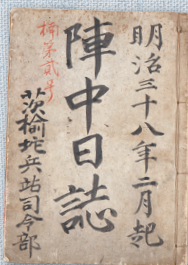 明治三十八年二月起
陣中日誌
第貳号
茨楡坨兵站司令部